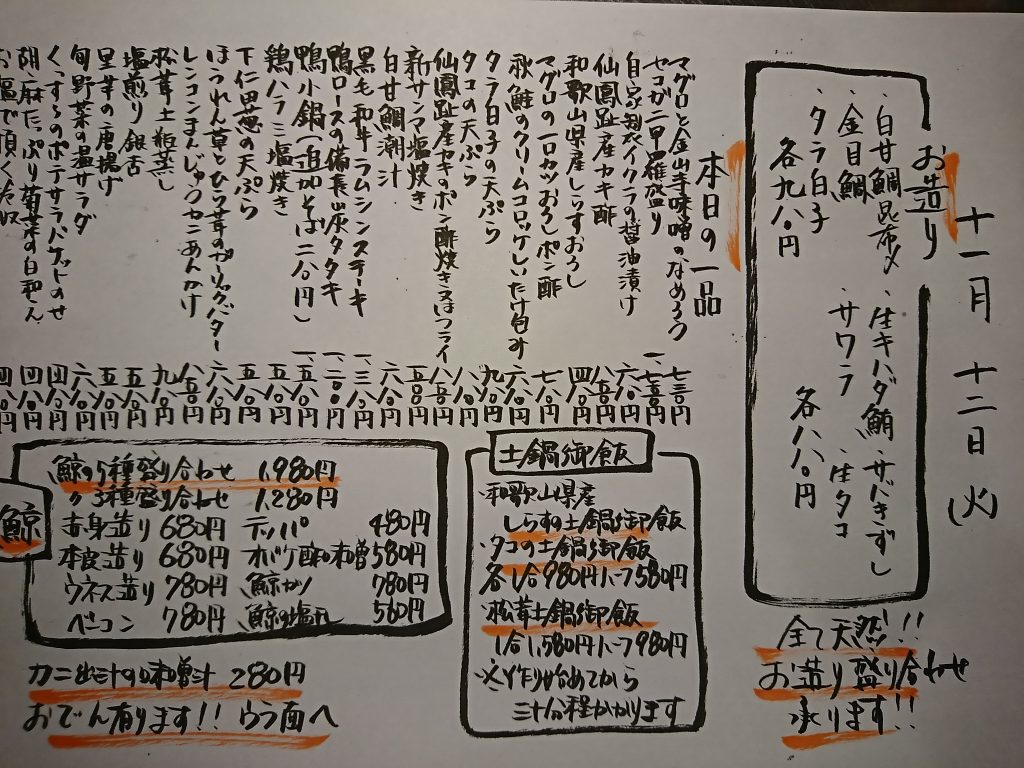 十一月 十二日(火)
お造り
・白甘鯛昆布〆 ・生キハダ鮪 ・サバきずし
・金目鯛 ・サワラ ・生タコ
・タラ白子
各九八〇円 各八八〇円
全て天然!!
お造り盛り合わせ
承ります!!
本日の一品
マグロと金山寺味噌のなめろう 七三〇円
セコガニ甲羅盛り
自家製イクラの醤油漬け 六八〇円
仙鳳趾産カキ酢 八五〇円
和歌山県産しらすおろし 四八〇円
マグロの一口カツおろしポン酢 七八〇円
秋鮭のクリームコロッケしいたけ包み 六八〇円
タラ白子の天ぷら 九八〇円
タコの天ぷら 八八〇円
仙鳳趾産カキのポン酢焼き又はフライ 八五〇円
新サンマ塩焼き 五八〇円
白甘鯛潮汁 六八〇円
黒毛和牛ラムシンステーキ 一、三八〇円
鴨ロースの備長炭タタキ 一、二八〇円
鴨小鍋(追加そば二八〇円) 一、五八〇円
鶏ハラミ塩焼き 五八〇円
下仁田葱の天ぷら 五八〇円
ほうれん草とひら茸のガーリックバター 六八〇円
レンコンまんじゅうカニあんかけ 八五〇円
松茸土瓶蒸し 九八〇円
塩煎り銀杏 五八〇円
里芋の唐揚げ 五八〇円
旬野菜の温サラダ 六八〇円
くっするのポテサラバケットのせ 四八〇円
胡麻たっぷり菊菜の白和え 四八〇円
お塩で頂く 四八〇円
土鍋御飯
・和歌山県産
しらすの土鍋御飯
・タコの土鍋御飯
各1合980円ハーフ580円
・松茸土鍋御飯
1合1,580円ハーフ980円
※作り始めてから
三十分程かかります
鯨
鯨の5種盛り合わせ 1,980円
〃3種盛り合わせ 1,280円
赤身造り 680円 テッパ 480円
本皮造り 680円 オバケ酢の味噌 580円
ウネス造り 780円 鯨カツ 780円
ベーコン 780円 鯨の塩 580円
カニ出汁の味噌汁 280円
おでん有ります!! ウラ面へ